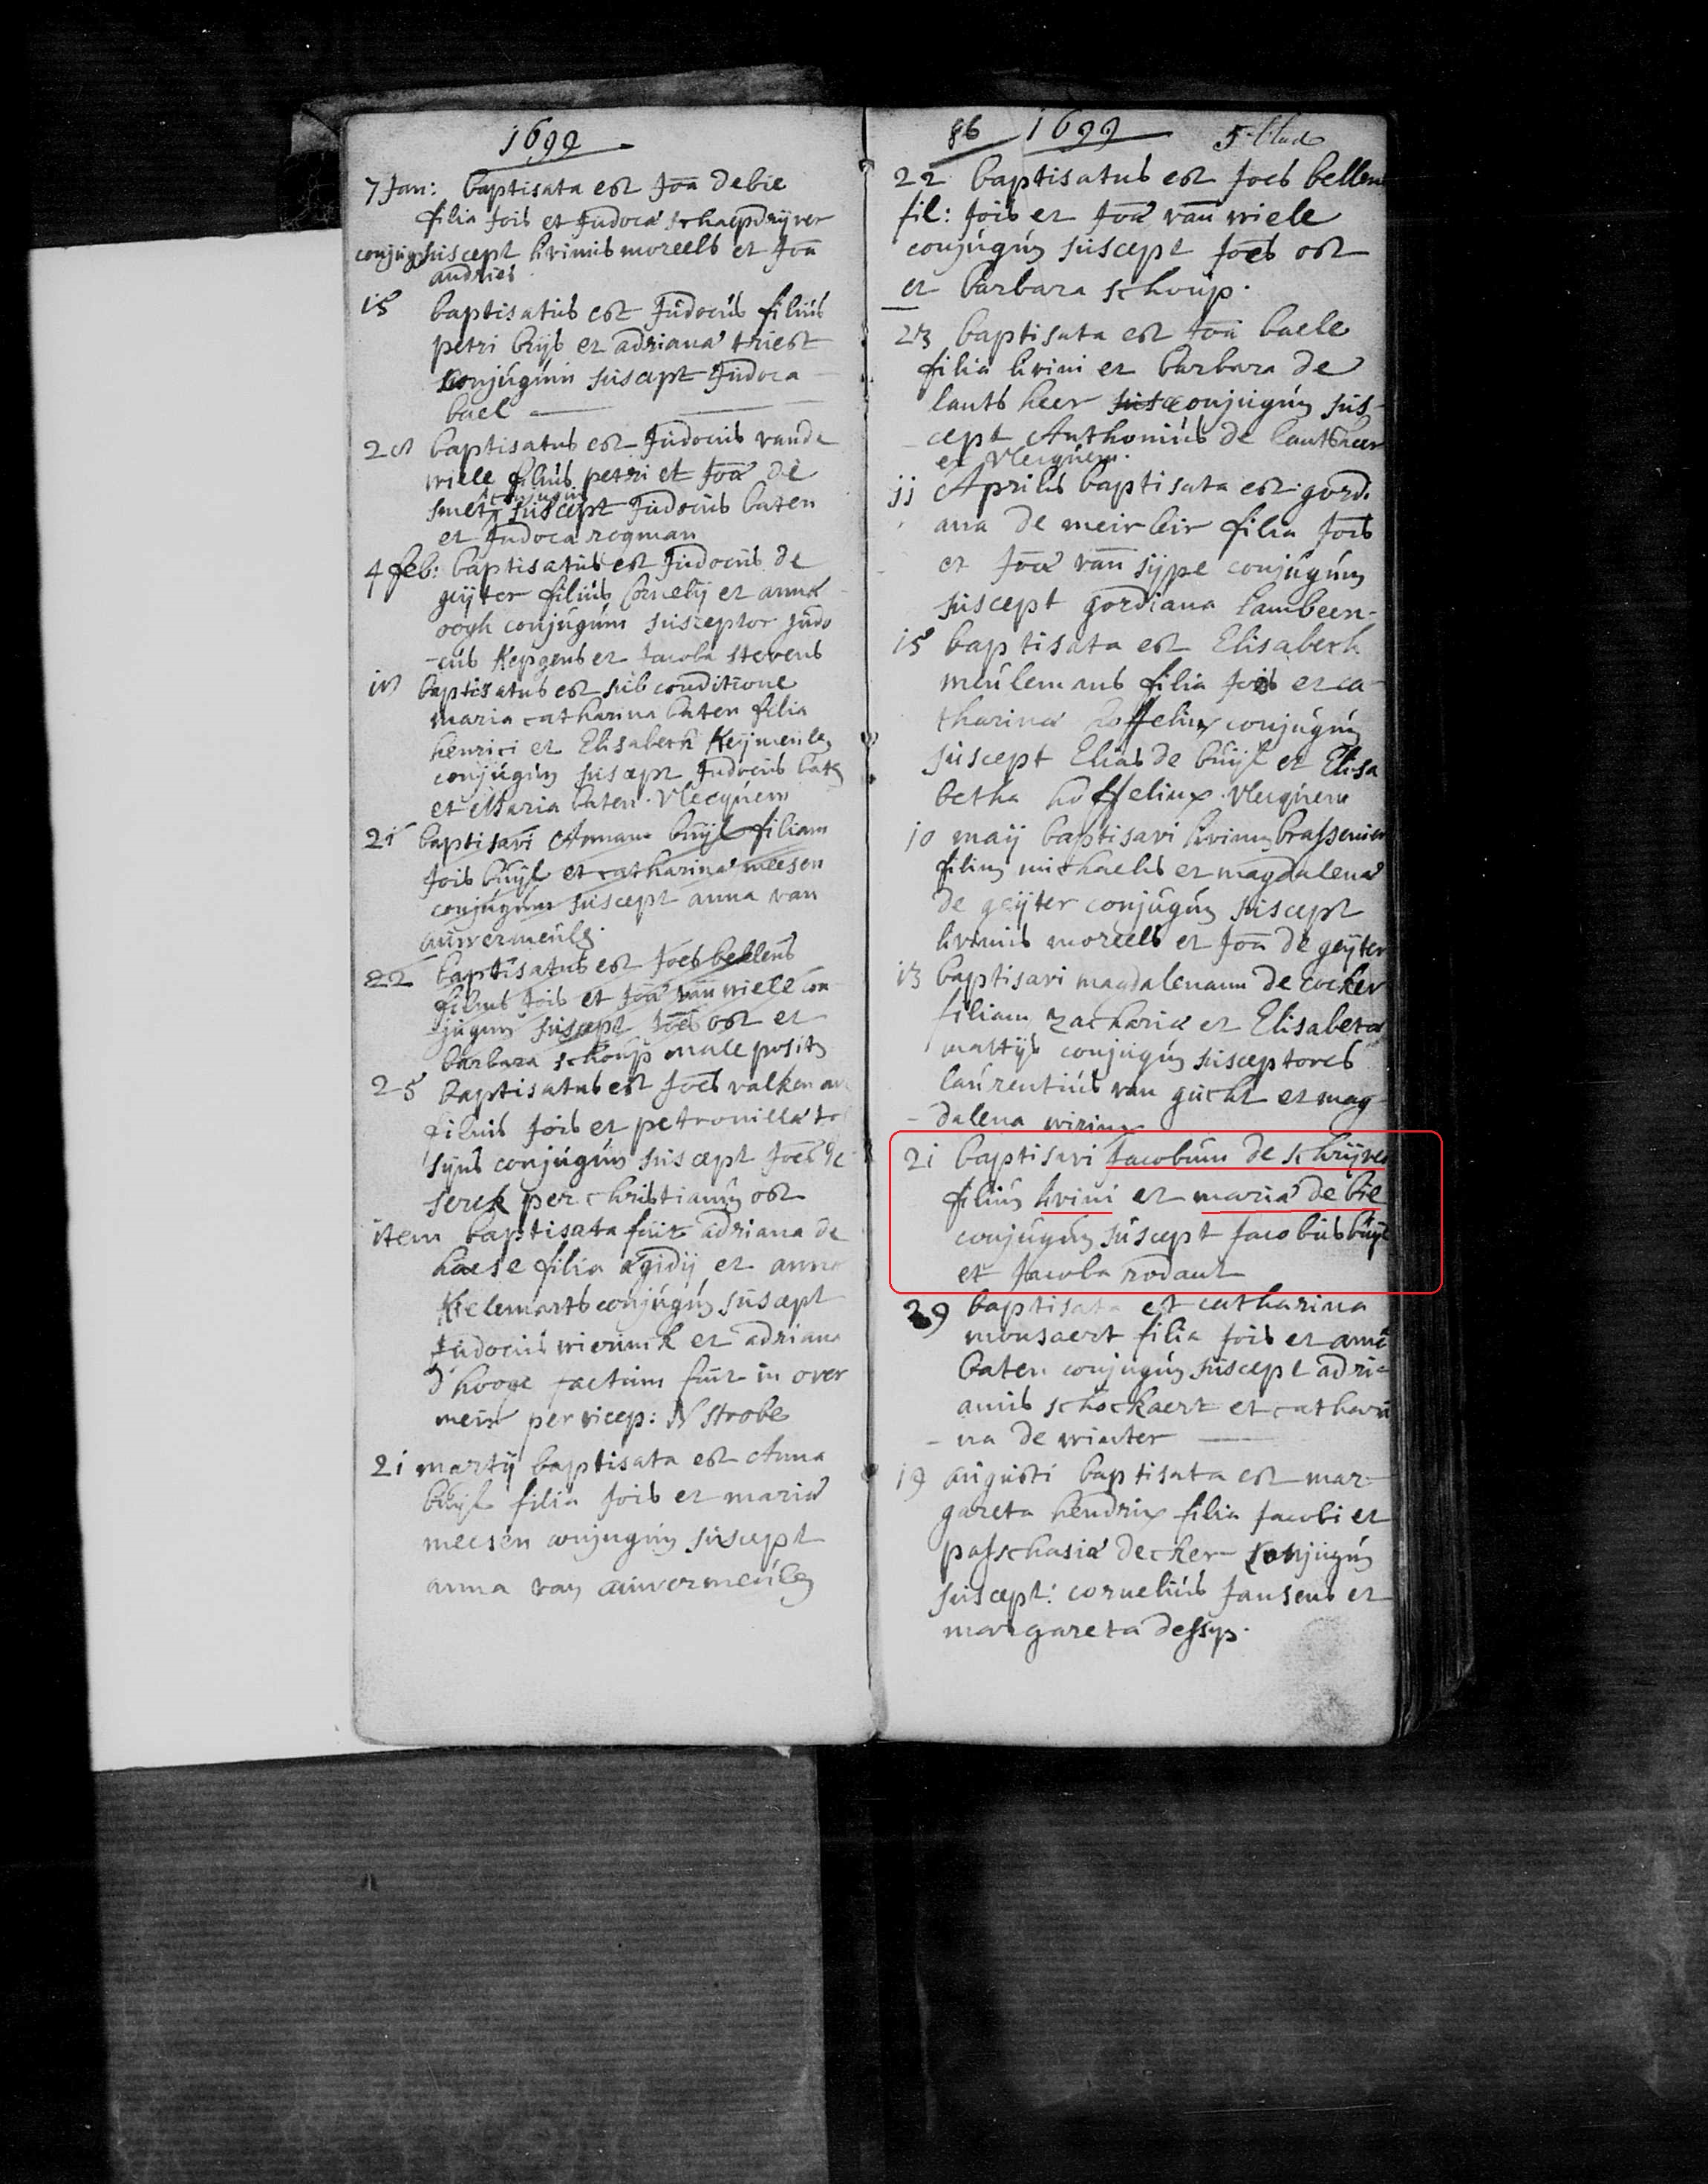 1699
7 Jan: baptisata est Joā de bie
filia Jois et Judocā schaepdryver
conjugū suscept livinus moreels et Joā
andries
15 baptisatus est Judocus filius
petri buys et adrianā triest
conjúgúm suscept Judoca
bael
baptisatus est Judocus vande
wiele filius petri et Joā de
smet conjugū suscept Judocus baten
et Judoca rogman
4 feb: baptisatus est Judocus de
geyter filius Cornelij et annā
oogh conjúgúm susceptor Judo
-cus Kepgens et Jacoba stevens
baptisatus est sub conditione
maria catharina baten filia
henrici et Elisabeth Keymeulē
conjúgúm suscept Judocus batē
et Maria baten. Vlecquem
21 baptisavi Annam buyl filiam
Jois buyl et catharinā meesen
conjúgúm suscept anna van
auwermeulē
22 baptisatus est Joēs bellens
filius Jois et Joā van wiele con
jugum suscept Joēs ost et
barbara schoup male posita
25 baptisatus est Joēs valken
filius Jois et petronillā
syns conjúgúm suscept Joēs de
serck per christianum ost
item baptisata fuit adriana de
haese filia ægidij et anna
Kielemarts conjúgúm suscept
Judocus wierinck et adriana
d'hooge factum fuit in over
meir per vicep: N Strobe
21 martij baptisata est Anna
buyl filia Jois et mariā
meesen conjugum suscept
anna van auwermeulē
86 1699 5 blad
22 baptisatus est Joēs bellens
fil: Jois et Joā van wiele
conjúgúm suscept Joēs ost
et barbara schoup.
23 baptisata est Joā baele
filia livini et barbara de
lantsheer susc conjúgúm sus-
cept Anthonius de lantsheer
et Vlecquem.
11 Aprilis baptisata est gordi
ana de meirleir filia Jois
et Joā van sype conjúgúm
suscept gordiana lambeen-
15 baptisata est Elisabeth
meulemans filia Jois et ca-
tharinā hoffelinx conjúgúm
suscept Elias de buyl et Elisa
betha hoffelinx. Vlecquem
10 maij baptisavi livinum brassenier
filium michaelis et magdalenā
de geyter conjúgúm suscept
livinus moreels et Joā de geyter
13 baptisavi magdalenam de cocker
filiam zachariæ et Elisabetæ
mattijs conjúgúm susceptores
laurentius van gucht et mag-
- dalena wirinx
21 baptisavi Jacobum de schrijver
filium livini et mariā de bie
conjúgúm súscept Jacobus buyl
et Jacoba rodant
29 baptisata est catharina
monsaert filia Jois et annā
baten conjúgúm suscept adri-
anus schockaert et cathari
- na de winter
19 augusti baptisata est mar-
gareta hendrix filia Jacobi et
passchasiā decker conjúgúm
suscept: cornelius Jansens et
margareta dessyp.